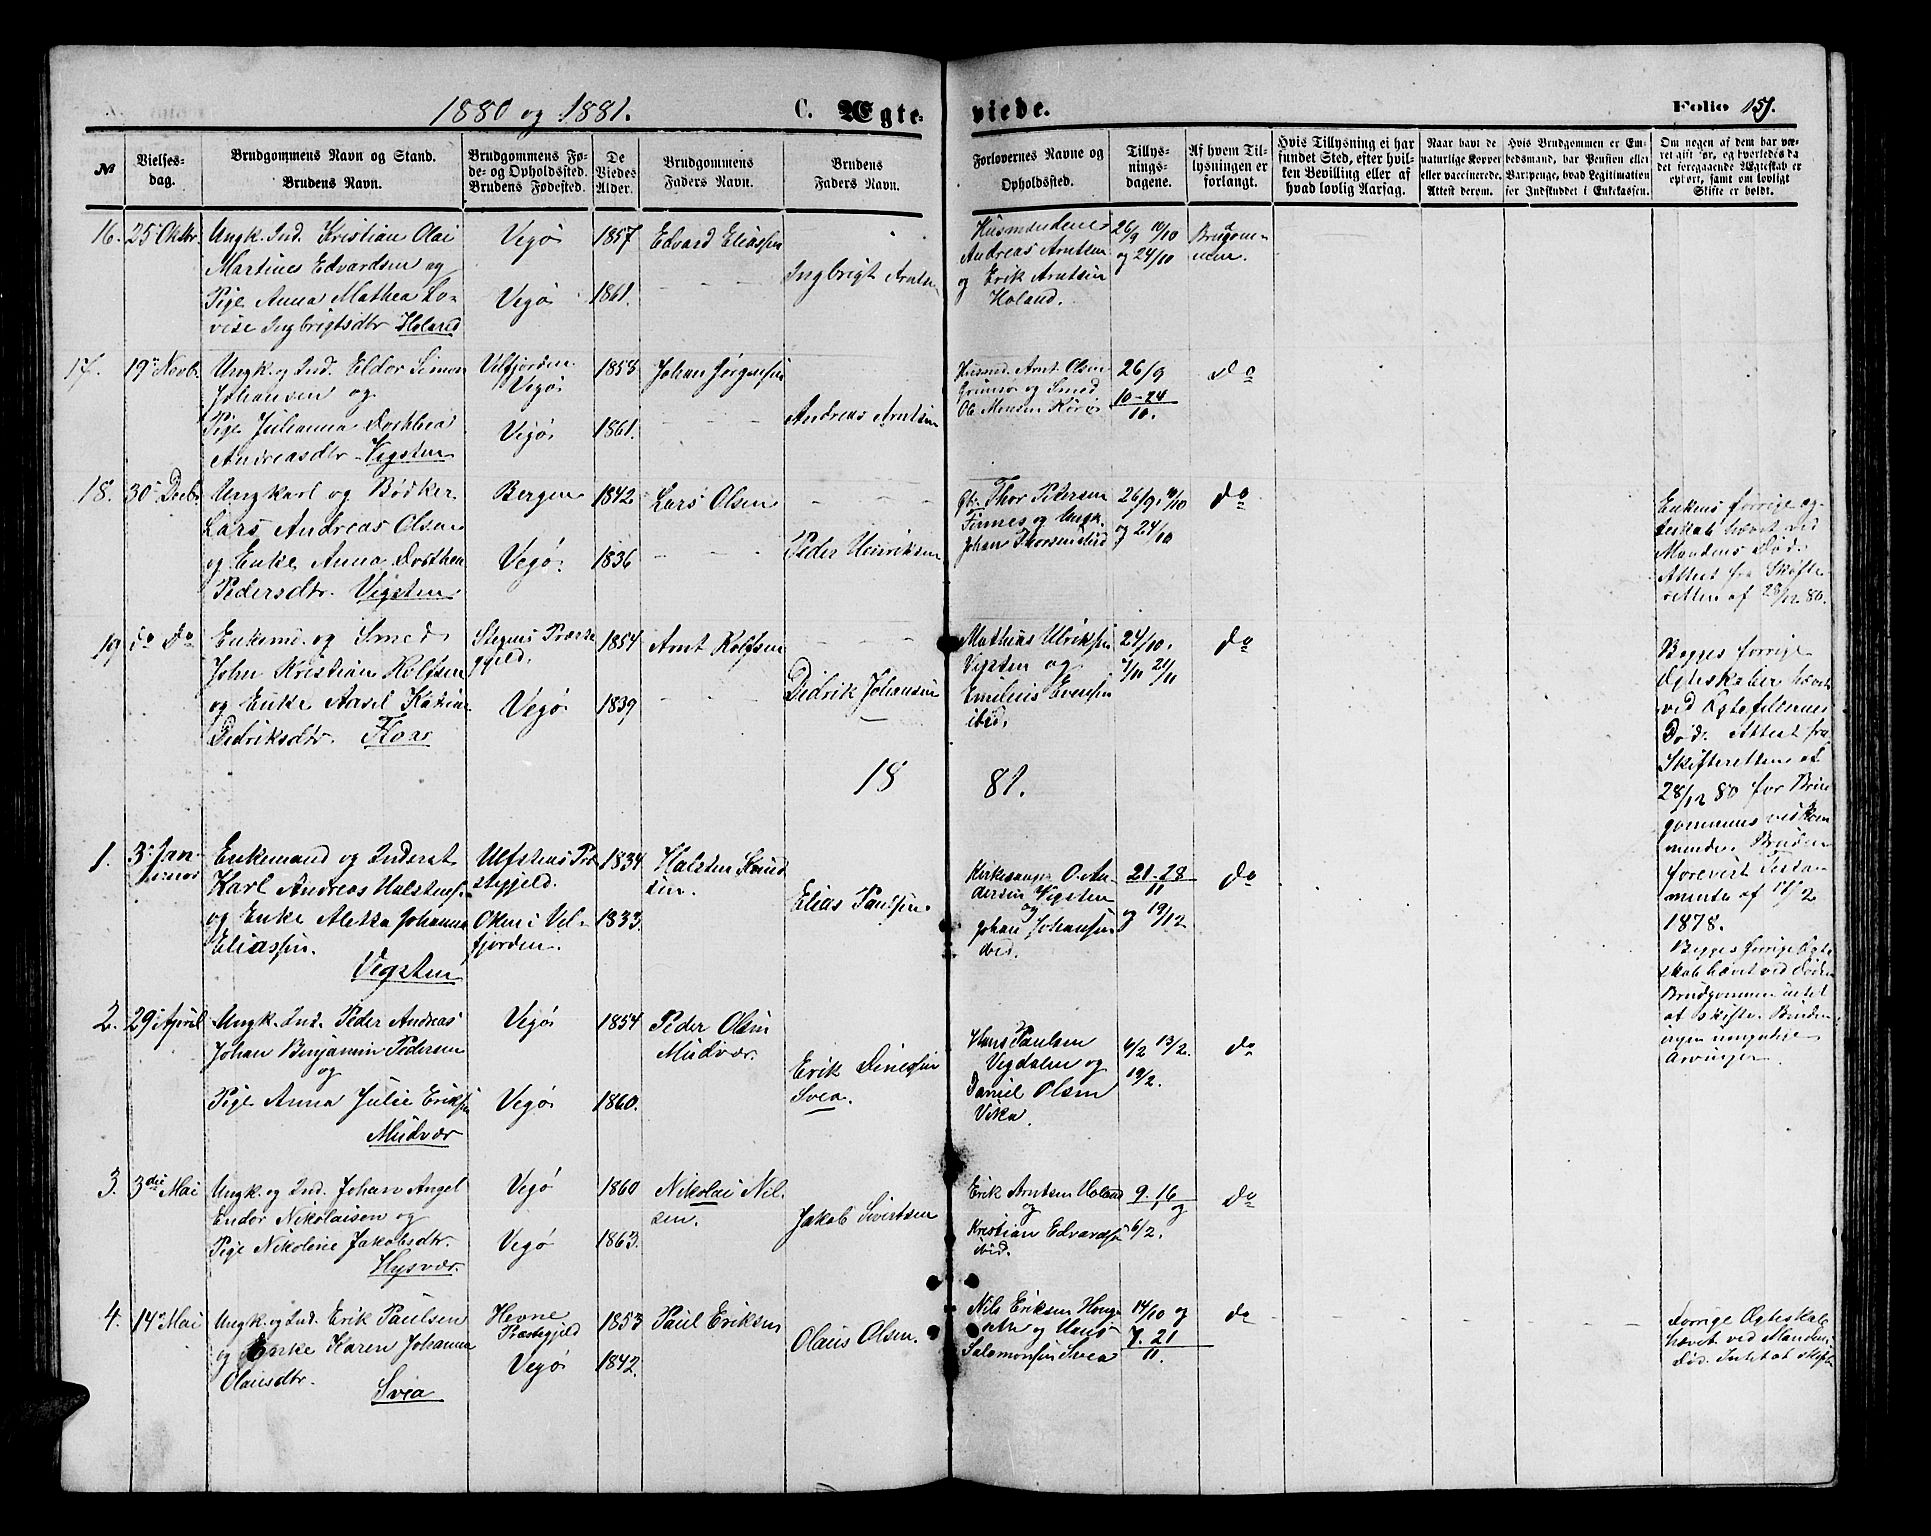 1880 og 1881. C. Ægte-
viede. Folio 157.
№
Vielses-
dag.
Brudgommens Navn og Stand.
Brudens Navn.
Brudgommens Fø-
de- og Opholdssted.
Brudens Fødested.
De
Viedes
Alder.
Brudgommens
Faders Navn.
Brudens
Faders Navn.
Forlovernes Navne og
Opholdssted.
Tillys-
nings-
dagene.
Af hvem Til-
lysningen er
forlangt.
Hvis Tillysning ei har
fundet Sted, efter hvil-
ken Bevilling eller af
hvad lovlig Aarsag.
Naar havt de
naturlige Kopper
eller vaccinerede.
Attest derom.
Hvis Brudgommen er En-
bedsmand, har Pension eller
Vartpenge, hvad Legitimation
for Indskuddet i Enkekassen.
Om nogen af dem har væ-
ret gift før, og hvorledes da
det foregaaende Ægteskab er
ophørt, samt om lovligt
Skifte er holdt.
16. 25 Oktbr.
Ungk. Ind. Kristian Olai
Martines Edvardsen og
Pige Anna Mathea Lo-
vise Ingbrigtsdtr Holand
Vegø
Vegø
1857
1861.
Edvard Eliassen
Ingbrigt Arntsen
Husmændene
Andreas Arntsen
og Erik Arntsen
Holand.
26/9 10/10
og 24/10
Brudgom-
men.
17. 19 Novb.
Ungk. og Ind. Eldor Simon
Johansen og
Pige Julianna Dorthea
Andreasdtr Vigsten
Velfjorden
Vegø
Vegø
1858
1861.
Johan Jørgensen
Andreas Arntsen
Husmd. Arnt Olsen
Grimsø og Smed
Ol. Monsen Kirø
26/9
10-24
10.
do
18. 30 Decb.
Ungkarl og Bødker
Lars Andreas Olsen
og Enke Anna Dorthea
Pedersdtr. Vigsten
Bergen
Vegø
1842
1836
Lars Olsen
Peder Henriksen
Gbr. Thor Pedersen
Firmes og Ungk.
Johan Thorsen ibid
26/9. 10/10
og 24/10
do
Enkens forrige æg-
teskab hævet ved
Mandens Død.
Attest fra Skifte-
retten af 28/12 80.
19 do do
Enkemd. og Smed
John Kristian Rolfsen
og Enke Aasel Katrine
Didriksdtr. Flore
Stegens Præste-
gjeld.
Vegø
1854
1839
Arnt Rolfsen
Didrik Johansen
Mathias Ulriksen
Vigsten og
Emilius Evensen
ibid.
24/10.
7/11 21/11
do
Begges forrige
Ægteskaber hævet
ved Ægtefellernes
Død. Attest fra
Skifteretten af
28/12 80 for Brud-
gommens vedkom-
mende. Bruden
forevist Testa-
mente af 11/2
1878.
18 81.
1. 3 Jan-
Karl Andreas Halstens.
Enkemand og Inderst
og Enke Aletta Johanna
Eliassen.
Vegsten
Ulfstens Præ-
stegjeld.
i Vel-
fjorden.
1834
1833
Halsten Knud-
sen.
Elias Paulsen.
Kirkesanger O. An-
dersen Vigsten
og
Johan Johansen
ibid.
21-28
11
og 19/12
do
Begges forrige Ægte-
skab hævet ved Døden
Brudgommen intet
at skifte. Bruden
ingen umyndige
Arvinger.
2. 29 April
Ungk. Ind. Peder Andreas
Johan Benjamin Pedersen
og
Pige Anna Julie Eriksen
Mudvær
Vegø
Vegø
1854
1860.
Peder Olsen
Mudvær.
Erik Dinesen
Svea.
Hans Paulsen
Vegdalen og
Daniel Olsen
Vika.
6/2 13/2.
19/2.
do
3. 3die Mai
Ungk. og Ind. Johan Angel
Endor Nikolaisen og
Pige Nikoline Jakobsdtr.
Hysvær.
Vegø
Vegø
1860
1863.
Nikolai Nil-
sen.
Jakob Sivertsen
Erik Arntsen Holand
og
Kristian Edvardsen
ibid.
9. 16
og
6/2.
do
4. 14 Mai
Ungk. og Ind. Erik Paulsen
og Enke Karen Johanna
Olausdtr. Svea
Hevne
Præstegjeld
Vegø
1853
1842.
Paul Eriksen
Olaus Olsen.
Nils Eriksen
og Hans
Salamonsen Svea
14/10 og
7. 21
11.
do
Forrige Ægteskab
hævet ved Mandens
Død. Intet at skifte